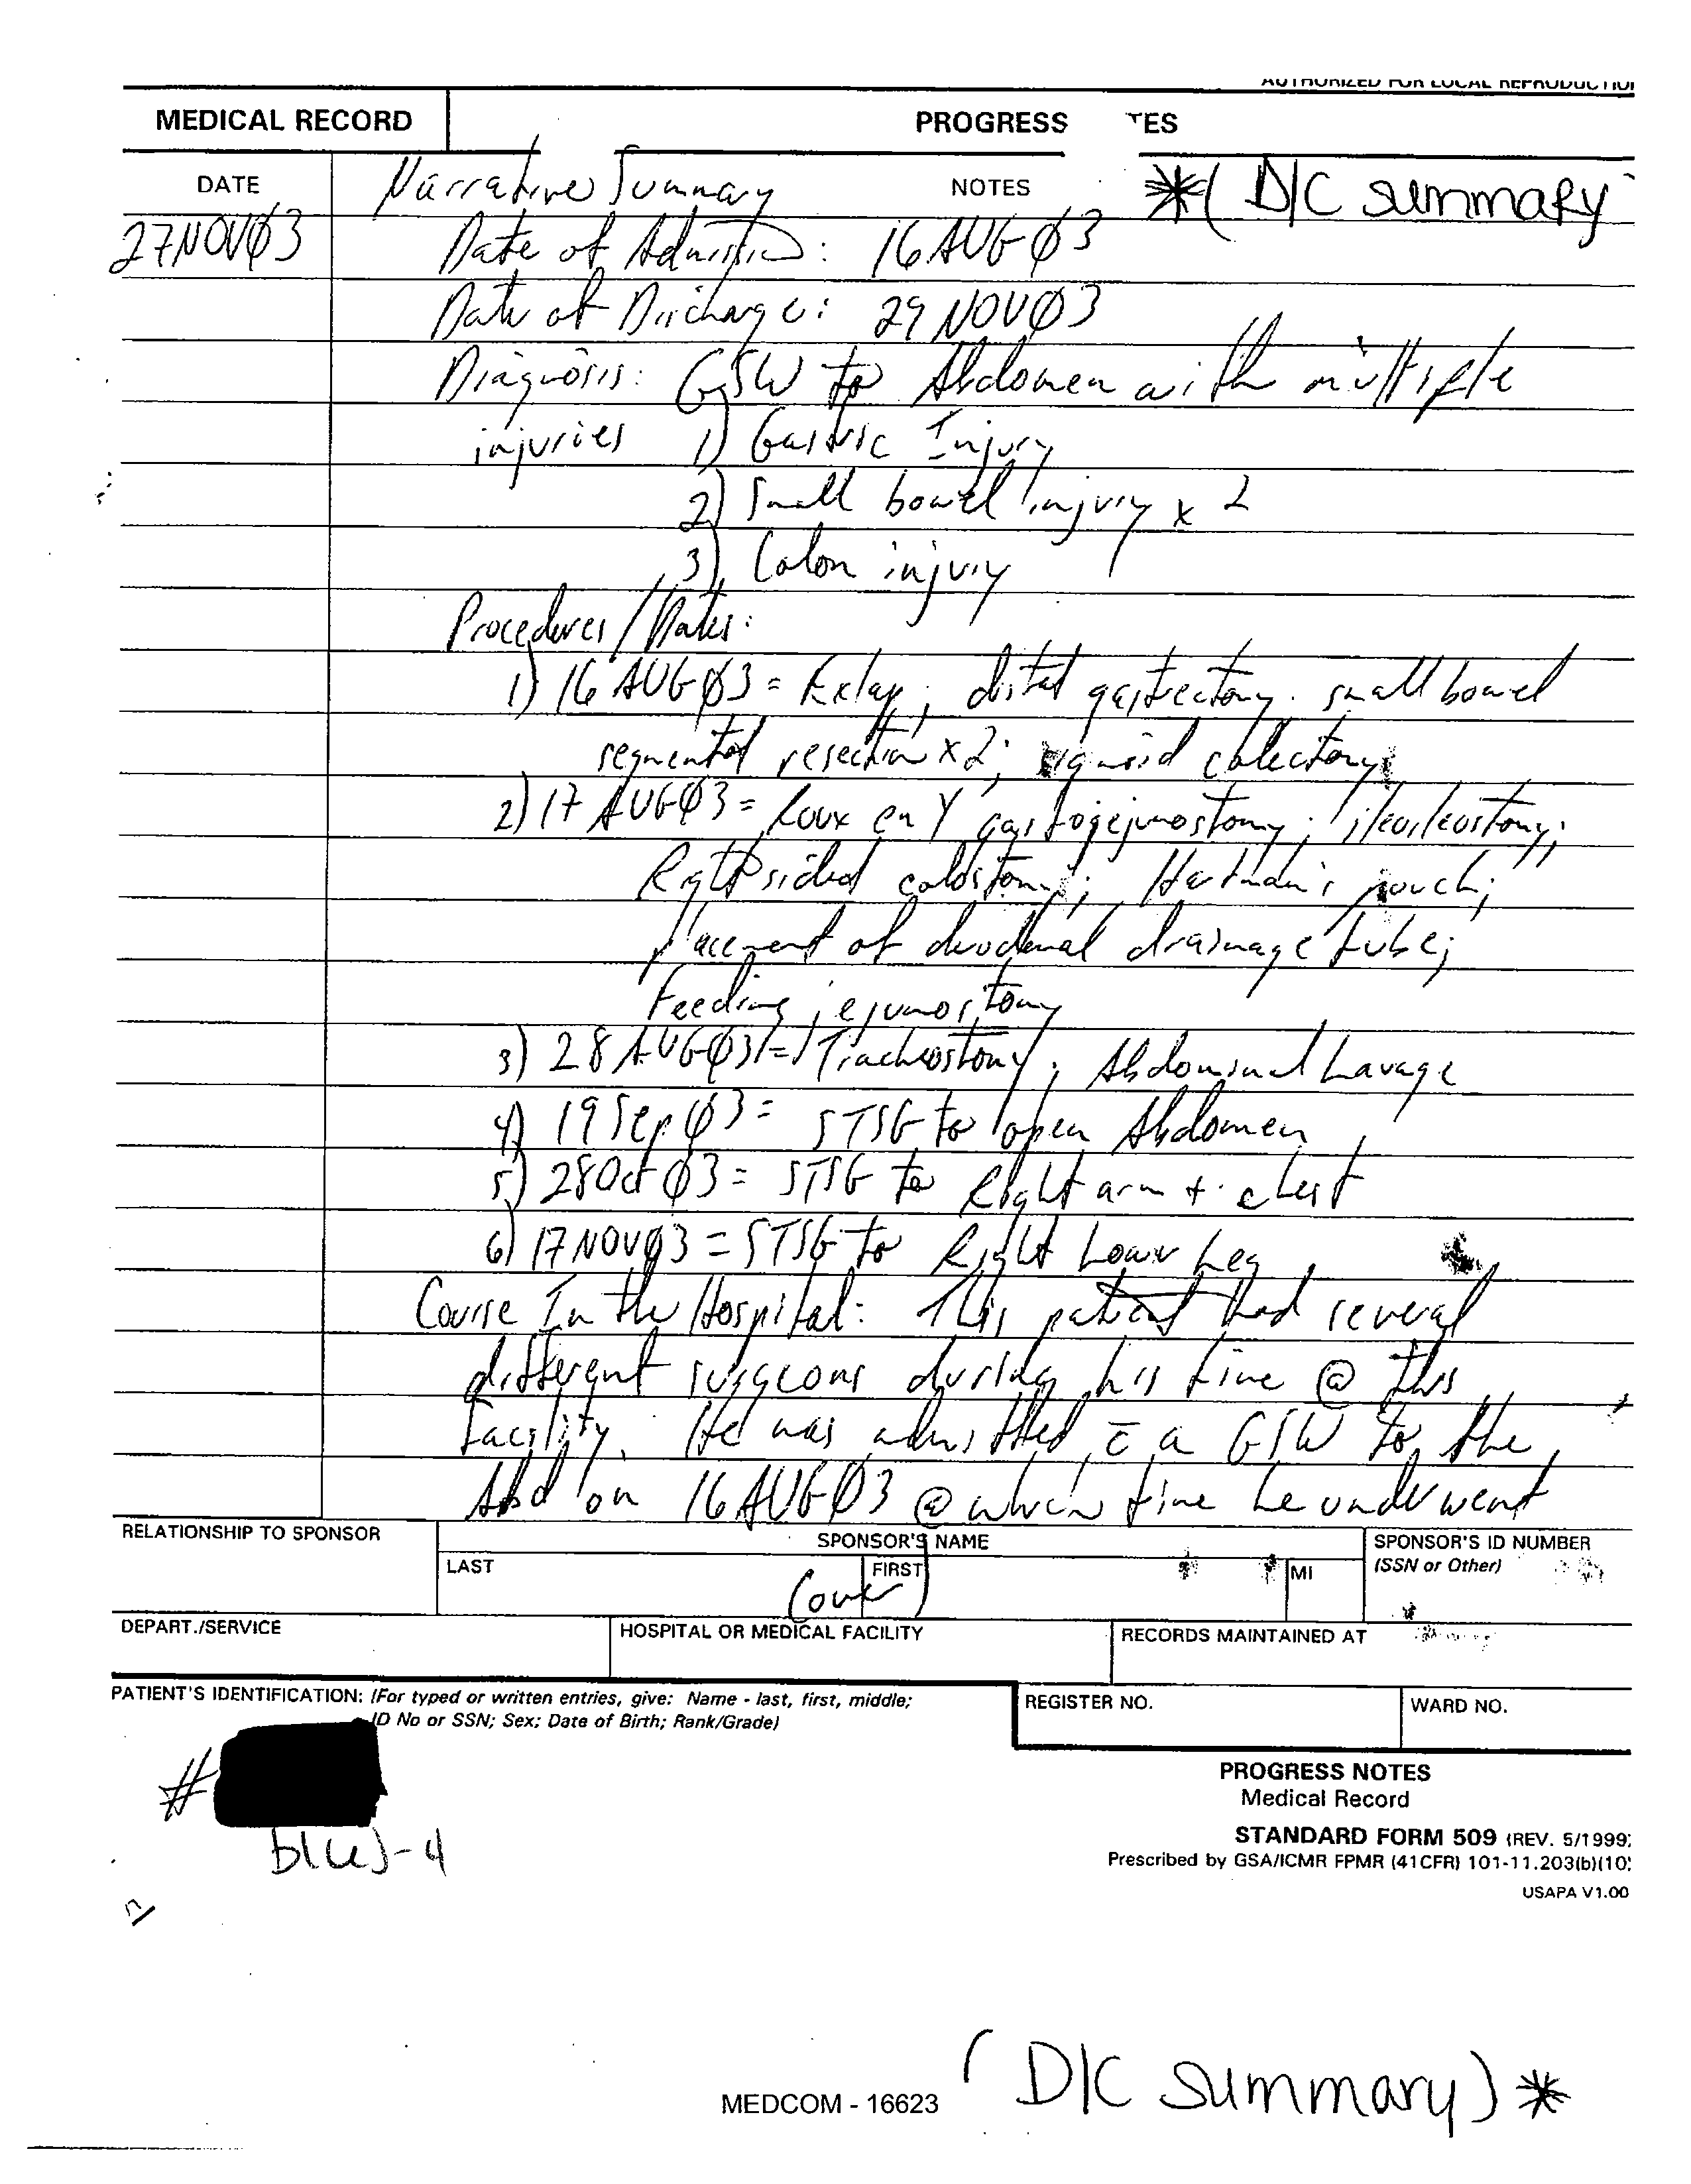 AUTHORIZED FOR LOCAL REPRODUCTIO
MEDICAL RECORD
PROGRESS TES
DATE
Narrative Summary
NOTES
*( D/C summary
27NOVØ3
Date of Admission: 16AUGØ3
Date of Discharge: 29NOVØ3
Diagnosis: GSW to Abdomen with multiple
injuries 1) Gastric Injury
2) Small bowel injury x 2
3) Colon injury
Procedures/Dates:
1) 16AUGØ3 = Exlap; distal gastrectomy. small bowel
segmental resection x2; sigmoid colectomy
2) 17AUGØ3 = Roux en Y gastrojejunostomy; ileoileostomy;
Right sided colostomy; Hartman's pouch;
placement of duodenal drainage tube;
Feeding jejunostomy
3) 28AUGØ3 = Tracheostomy; Abdominal Lavage
4) 19SepØ3 = STSG to open Abdomen
5) 28OctØ3 = STSG to Right arm + chest
6) 17NOVØ3 = STSG to Right Lower Leg
Course In the Hospital: This patient had several
different surgeons during his time @ this
facility. He was admitted c̄ a GSW to the
Abd on 16AUGØ3 @ which time he underwent
RELATIONSHIP TO SPONSOR
SPONSOR'S NAME
SPONSOR'S ID NUMBER
(SSN or Other)
LAST
FIRST
MI
(over)
DEPART./SERVICE
HOSPITAL OR MEDICAL FACILITY
RECORDS MAINTAINED AT
PATIENT'S IDENTIFICATION: (For typed or written entries, give: Name - last, first, middle;
ID No or SSN; Sex; Date of Birth; Rank/Grade)
REGISTER NO.
WARD NO.
#
b(6)-4
PROGRESS NOTES
Medical Record
STANDARD FORM 509 (REV. 5/1999)
Prescribed by GSA/ICMR FPMR (41CFR) 101-11.203(b)(10)
USAPA V1.00
MEDCOM - 16623
(D/C summary)*